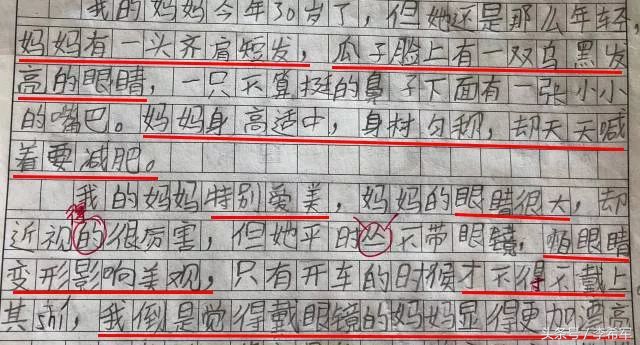 我的妈妈今年30岁了，但她还是那么年轻，
妈妈有一头齐肩短发，瓜子脸上有一双乌黑发
高的眼睛，一只不算挺的鼻子下面有一张小小
的嘴巴。妈妈身高适中，身材匀称，却天天喊
着要减肥。
我的妈妈特别爱美，妈妈的眼睛很大，却
得
近视的很厉害，但她平时从不带眼镜，怕眼睛
变形影响美观，只有开车的时候才不得不戴上
其shí，我倒是觉得戴眼镜的妈妈显得更加漂高
头条号/李希军